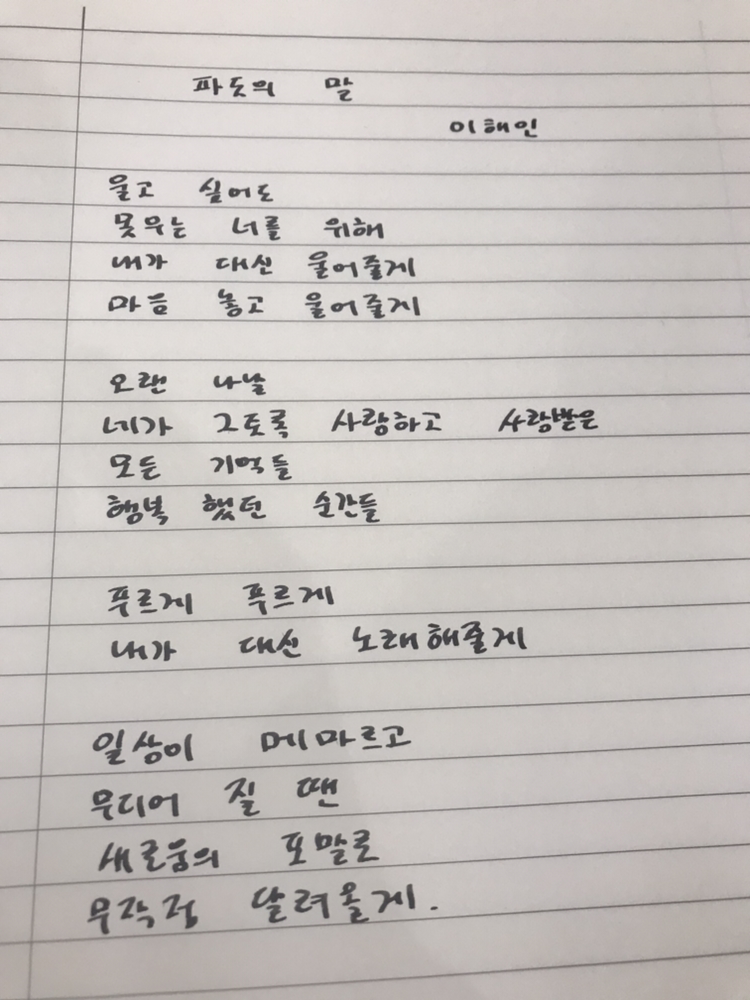 파도의 말
이해인
울고 싶어도
못우는 너를 위해
내가 대신 울어줄게
마음 놓고 울어줄게
오랜 나날
네가 그토록 사랑하고 사랑받은
모든 기억들
행복 했던 순간들
푸르게 푸르게
내가 대신 노래해줄게
일상이 메마르고
무디어 질 땐
새로움의 포말로
무작정 달려올게.